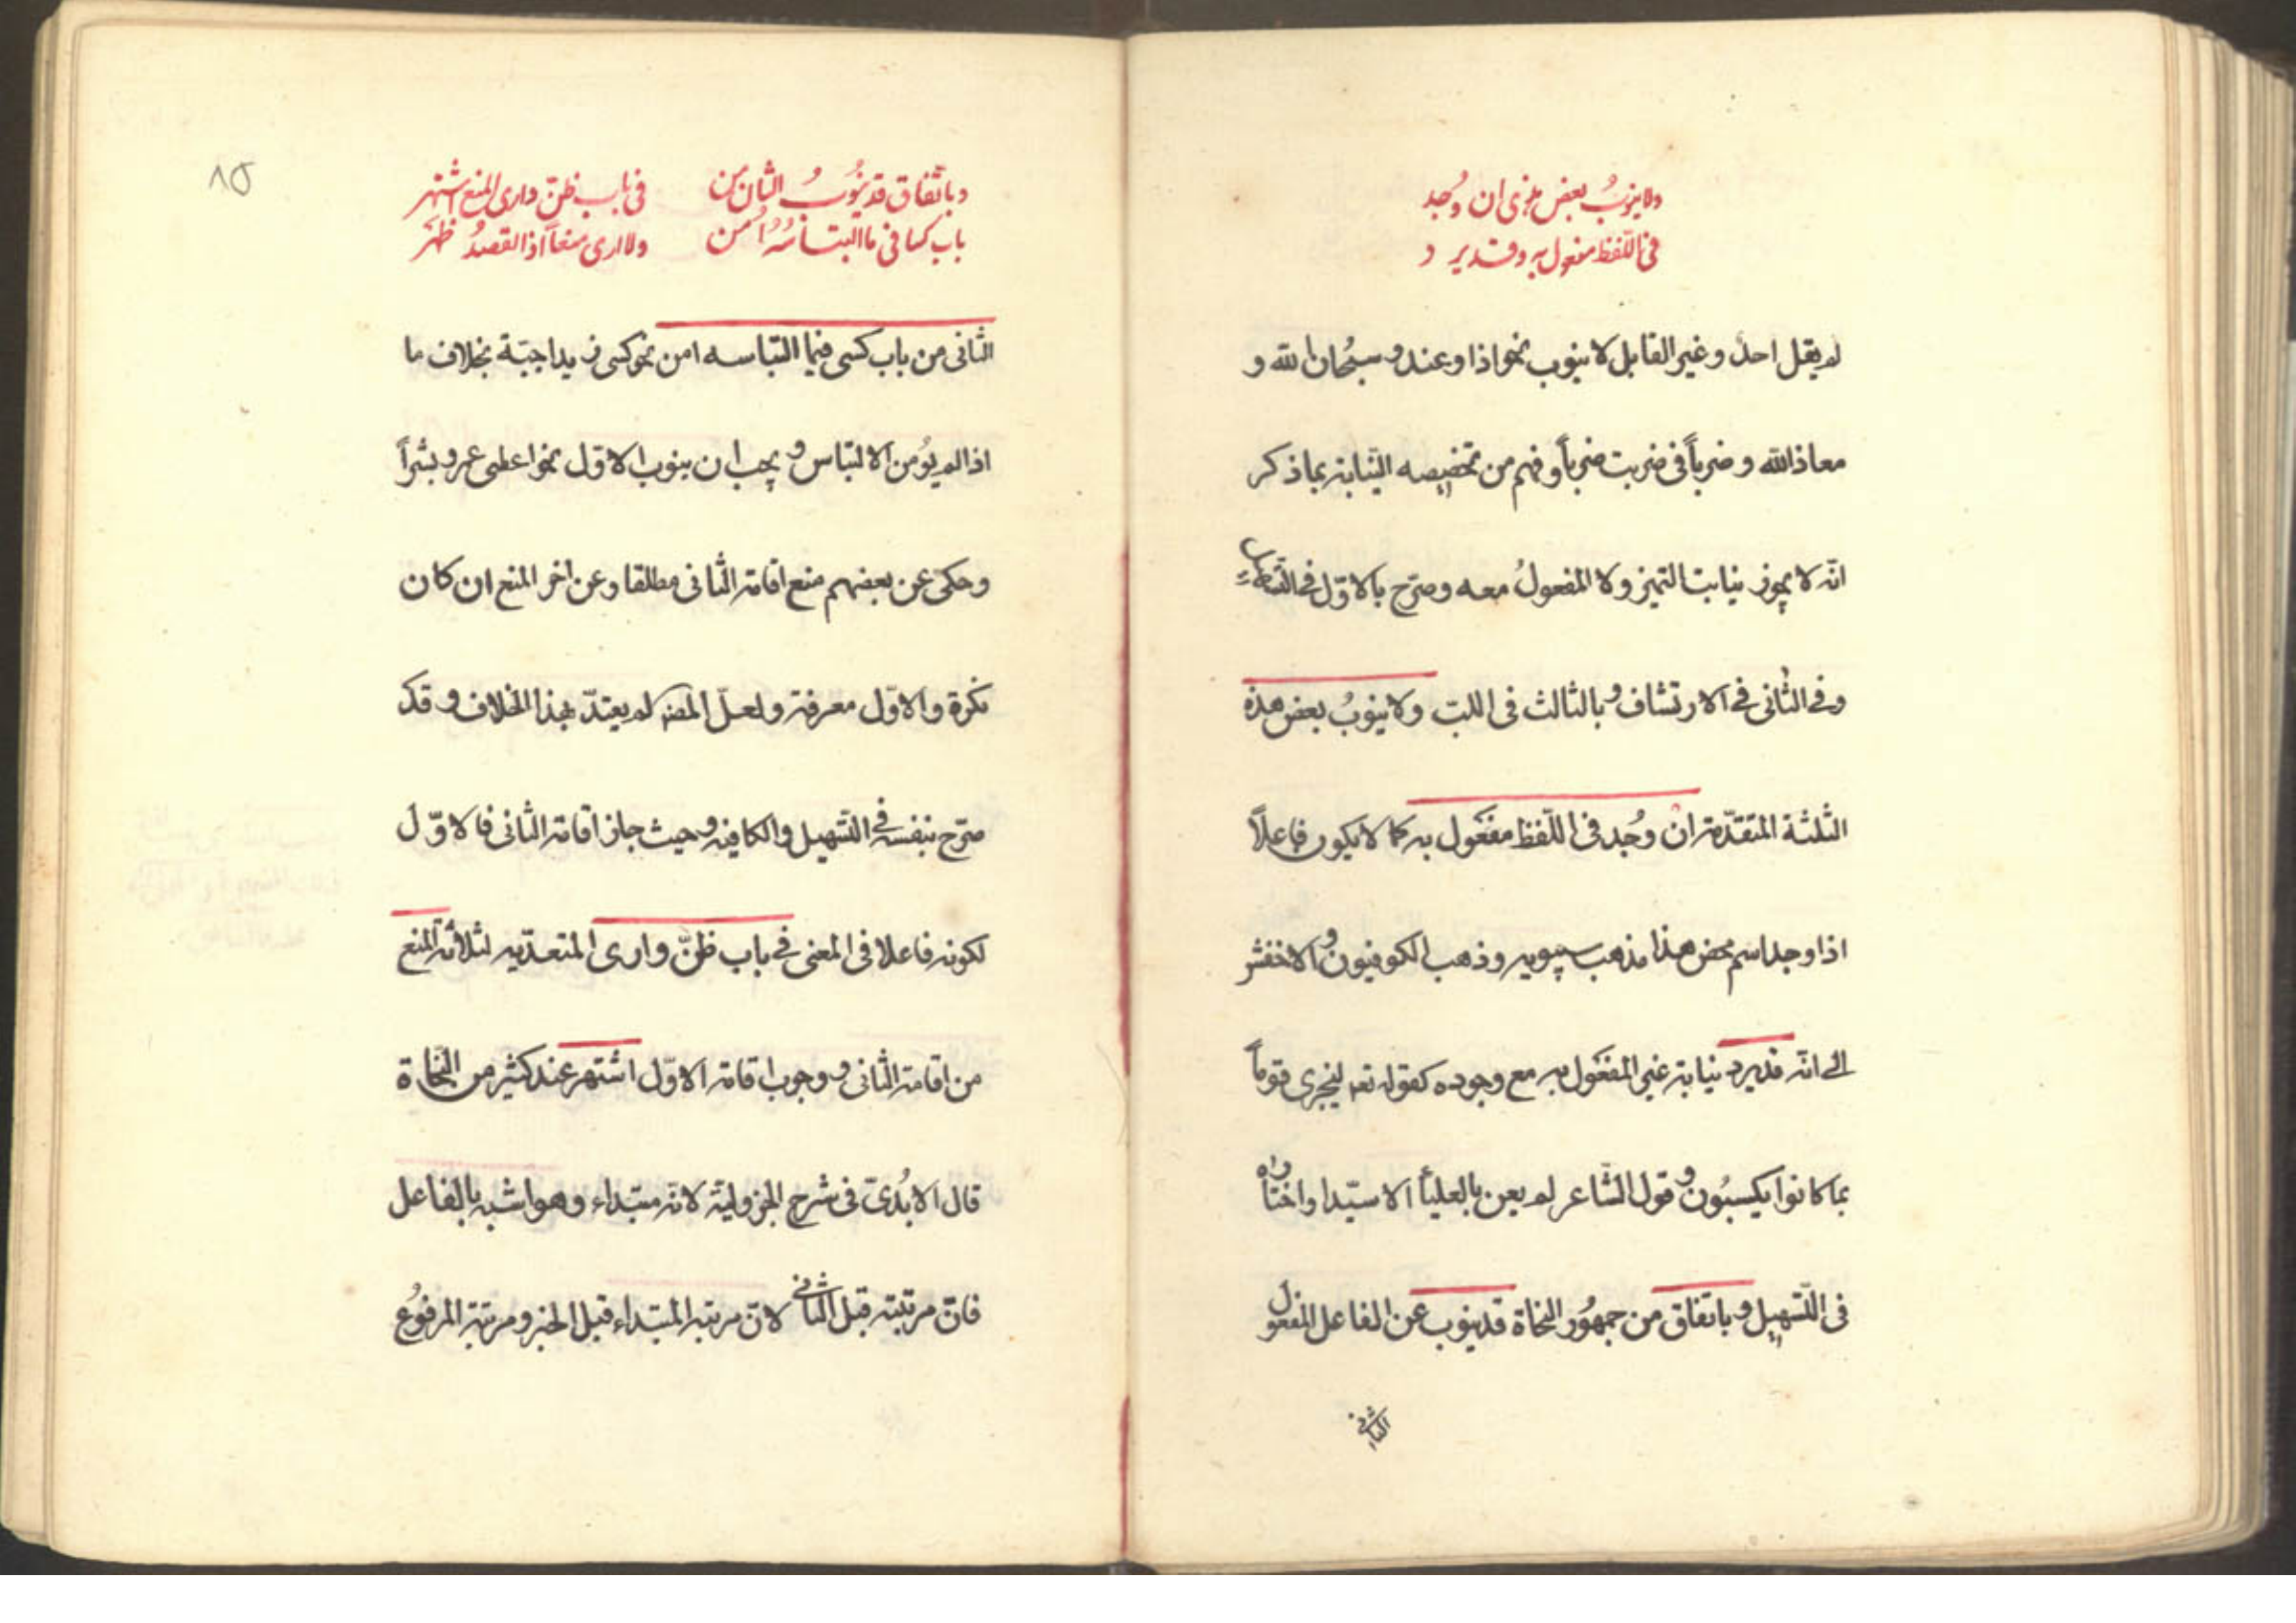 ولا ينوبُ بعض هذى ان وُجد
فى اللّفظ مفعول به وقد يرد
لم يقل احدٌ وغير القابل لا ينوب نحو اذا وعند وسبحان الله و
معاذ الله وضرباً فى ضربت ضرباً وفهم من تخصيصه النّيابة بما ذكر
انّه لا يجوز نيابت التميز ولا المفعولُ معه وصرّح بالاوّل فى
وفى الثانى فى الارتشاف وبالثالث فى اللب ولا ينوبُ بعض هذه
الثلثة المتقدّمة ان وُجد فى اللّفظ مفعُول به كما لا يكون فاعلاً
اذا وجد اسم محض هذا مذهب سيبويه وذهب الكوفيون والاخفش
الى انّه قد يرد نيابة غير المفعُول به مع وجوده كقوله تعه ليجزى قوماً
بما كانوا يكسبُون وقول الشّاعر لم يعن بالعليأ الا سيّدا واختاره
فى التّسهيل وباتفاق من جمهُور النحاة قد ينوب عن الفاعل المفعول
الثانى
١٥
وباتّفاق قد ينُوبُ الثان من
باب كسا فى ما البتاسُهُ اُمن
فى باب ظنّ وارى المنع اشتهر
ولا ارى منعاً اذا القصدُ ظهَر
الثانى من باب كسى فيما التباسه امن نحو كسى زيدا جبّة بخلاف ما
اذا لم يُؤمن الالتباس ويجب ان ينوب الاوّل نحو اعطى عمرو بشراً
وحكى عن بعضهم منع اقامة الثانى مطلقا وعن اخر المنع ان كان
نكرة والاوّل معرفة ولعلّ المصه لم يعتدّ بهذا الخلاف وقد
صرّح بنفسه فى التّسهيل والكافيه وحيث جاز اقامة الثانى فالاوّل
لكونه فاعلا فى المعنى فى باب ظنّ وارى المتعدّيه لثلاثة المنع
من اقامة الثانى ووجوب اقامة الاوّل اشتهر عند كثير من النّحاة
قال الابُدىّ فى شرح الجزوليّة لانّه مبتداء وهو اشبه بالفاعل
فانّ مرتبته قبل الثانى لانّ مرتبة المبتداء قبل الخبر ومرتبة المرفوُع